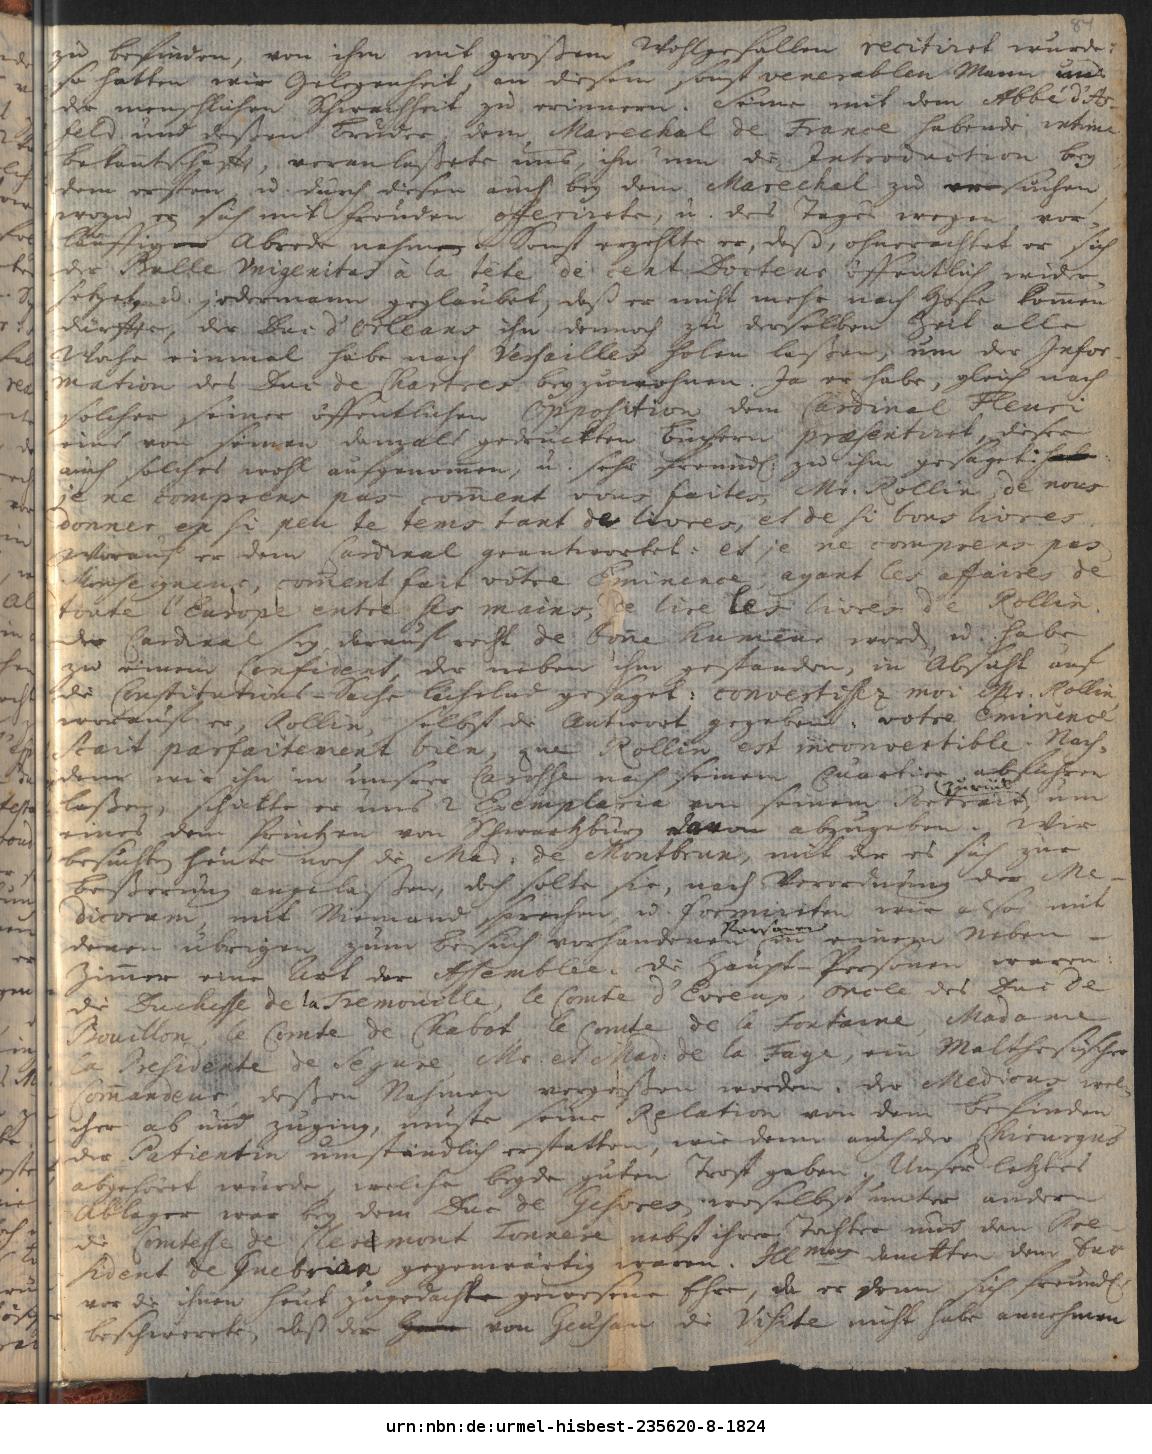 84
zu befinden, von ihm mit großem Wohlgefallen recitiret wurde:
so hatten wir Gelegenheit, an diesem sonst venerablen Mann uns
der menschlichen Schwachheit zu erinnern. Seine mit dem Abbé d'As-
feld und deßen Bruder, dem Marechal de France habende intime
bekantschafft, veranlaßete uns, ihn um die Introduction bey
dem ersten, u. durch diesen auch bey dem Marechal zu ersuchen
wozu er sich mit freuden offerirete, u. des Tages wegen vor-
läuffige Abrede nahm. Sonst erzehlte er, daß, ohnerachtet er sich
der Bulle Unigenitus à la tête de cent Docteur öffentlich wider-
setzet, u. jedermann geglaubet, daß er nicht mehr nach Hofe kom̄en
dürffte, der Duc d'Orleans ihn dennoch zu derselben Zeit alle
Woche einmal habe nach Versailles holen laßen, um der Infor-
mation des Duc de Chartres beyzuwohnen. Ja er habe, gleich nach
solcher seiner öffentlichen Opposition dem Cardinal Fleuri
eins von seinen damals gedruckten Büchern præsentiret, dieser
auch solches wohl aufgenom̄en, u. sehr freundl. zu ihm gesaget:
je ne comprens pas com̄ent vous faites, Mr. Rollin, de nous
donner en si peu de tems tant de livres, et de si bons livres.
Worauf er dem Cardinal geantwortet: et je ne comprens pas,
Monseigneur, com̄ent fait vôtre Eminence, ayant les affaires de
toute l'Europe entre ses mains, de lire les livres de Rollin.
der Cardinal sey darauf recht de bon̄e humeur word, u. habe
zu einem Confident, der neben ihm gestanden, in Absicht auf
die Constitutions-Sache lächelnd gesaget: convertissez moi Mr. Rollin,
worauf er, Rollin, selbst die Antwort gegeben: votre Eminence
sçait parfaitement bien, que Rollin est inconvertible. Nach-
dem wir ihn in unsrer Carosse nach seinem Quartier zurück abführen
laßen, schickte er uns 2 Exemplaria von seinem Portrait, um
eines dem Printzen von Schwartzburg davon abzugeben. Wir
besuchten heute noch die Mad. de Montbrun, mit der es sich zur
beßerung angelaßen, doch solte sie, nach Verordnung der Me-
dicorum, mit Niemand sprechen, u. formirten wir also mit
denen übrigen zum besuch vorhandenen Personen in einem Neben-
Zim̄er eine Art der Assemblée. die Haupt-Personen waren:
die Duchesse de la Tremouille, le Comte d'Evreux, oncle des Duc de
Bouillon, le Comte de Chabot, le Comte de la Fontaine, Madame
la Presidente de Segure, Mr. et Mad. de la Faye, ein Malthesischer
Com̄andeur, deßen Nahmen vergeßen worden. der Medicus, wel-
cher ab und zuging, muste seine Relation von dem befinden
der Patientin umständlich erstatten, wie denn auch der Chirurgus
abgehöret wurde, welche beyde guten Trost gaben. Unser letztes
Ablager war bey dem Duc de Gesvres, woselbst unter andern
die Comtesse de Clermont Tonnere nebst ihrer Tochter und den Pre-
sident de Quebrian gegenwärtig waren. Illmus danckten dem Duc
vor die ihnen heut zugedachte gewesene Ehre, da er denn sich freundl.
beschwerete, daß der von Geusau die Visite nicht habe annehmen
urn:nbn:de:urmel-hisbest-235620-8-1824